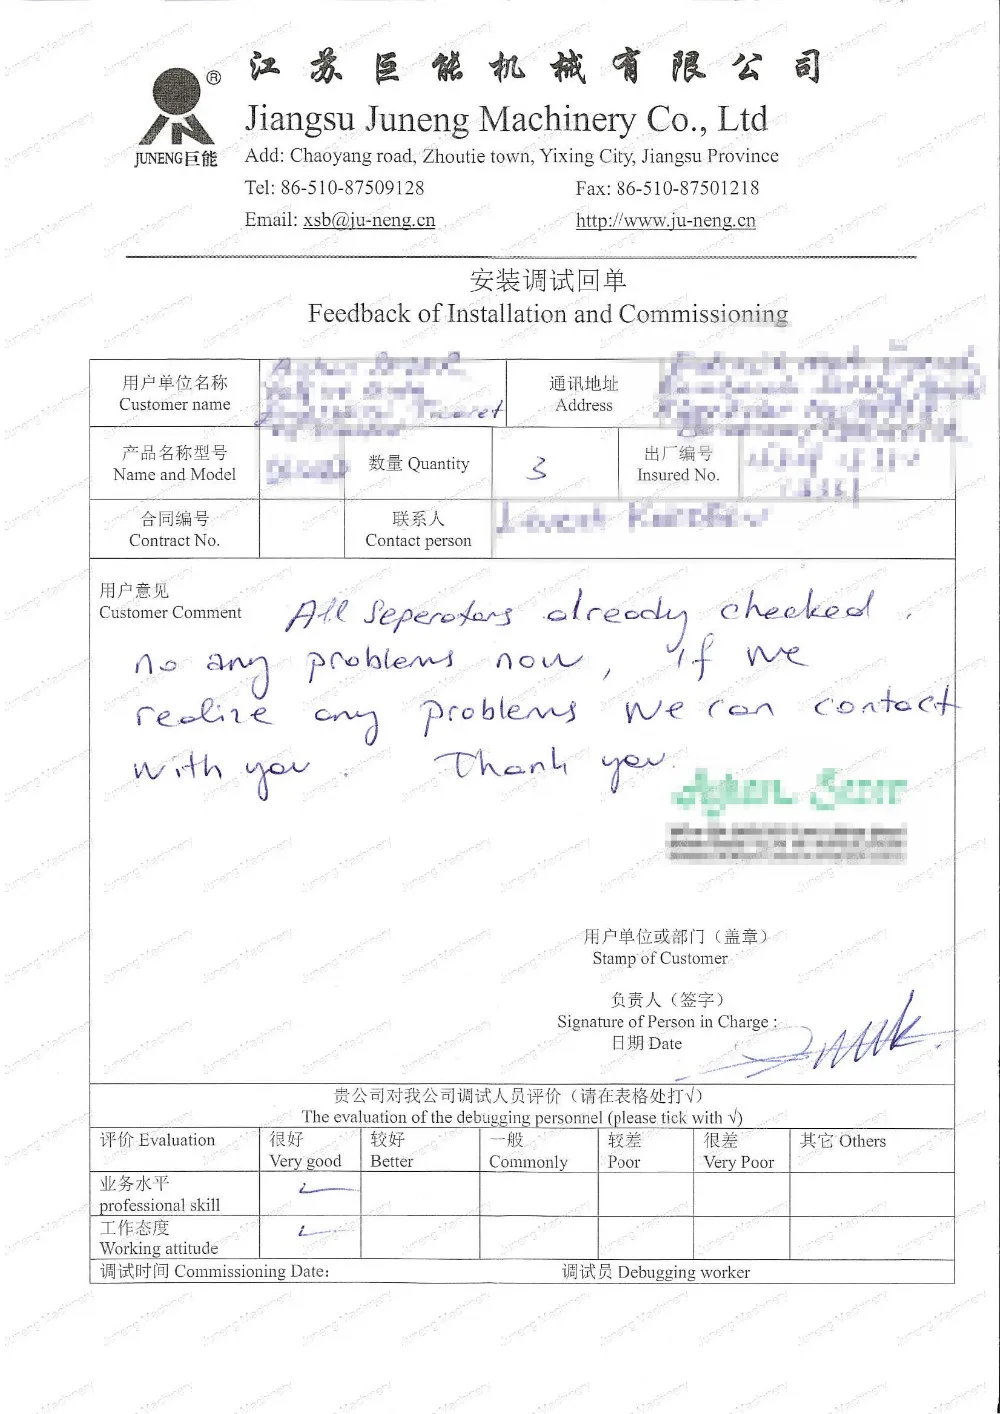 江苏巨能机械有限公司
®
JUNENG巨能
Jiangsu Juneng Machinery Co., Ltd
Add: Chaoyang road, Zhoutie town, Yixing City, Jiangsu Province
Tel: 86-510-87509128 Fax: 86-510-87501218
Email: xsb@ju-neng.cn http://www.ju-neng.cn
安装调试回单
Feedback of Installation and Commissioning
用户单位名称 通讯地址
Customer name Address
产品名称型号 数量 Quantity 3 出厂编号
Name and Model Insured No.
合同编号 联系人
Contract No. Contact person
用户意见
Customer Comment All Seperators already checked.
no any problems now, if we
realize any problems we can contact
with you. Thank you.
用户单位或部门（盖章）
Stamp of Customer
负责人（签字）
Signature of Person in Charge :
日期 Date
贵公司对我公司调试人员评价（请在表格处打√）
The evaluation of the debugging personnel (please tick with √)
评价 Evaluation 很好 较好 一般 较差 很差 其它 Others
Very good Better Commonly Poor Very Poor
业务水平
professional skill
工作态度
Working attitude
调试时间 Commissioning Date: 调试员 Debugging worker
Juneng Machinery